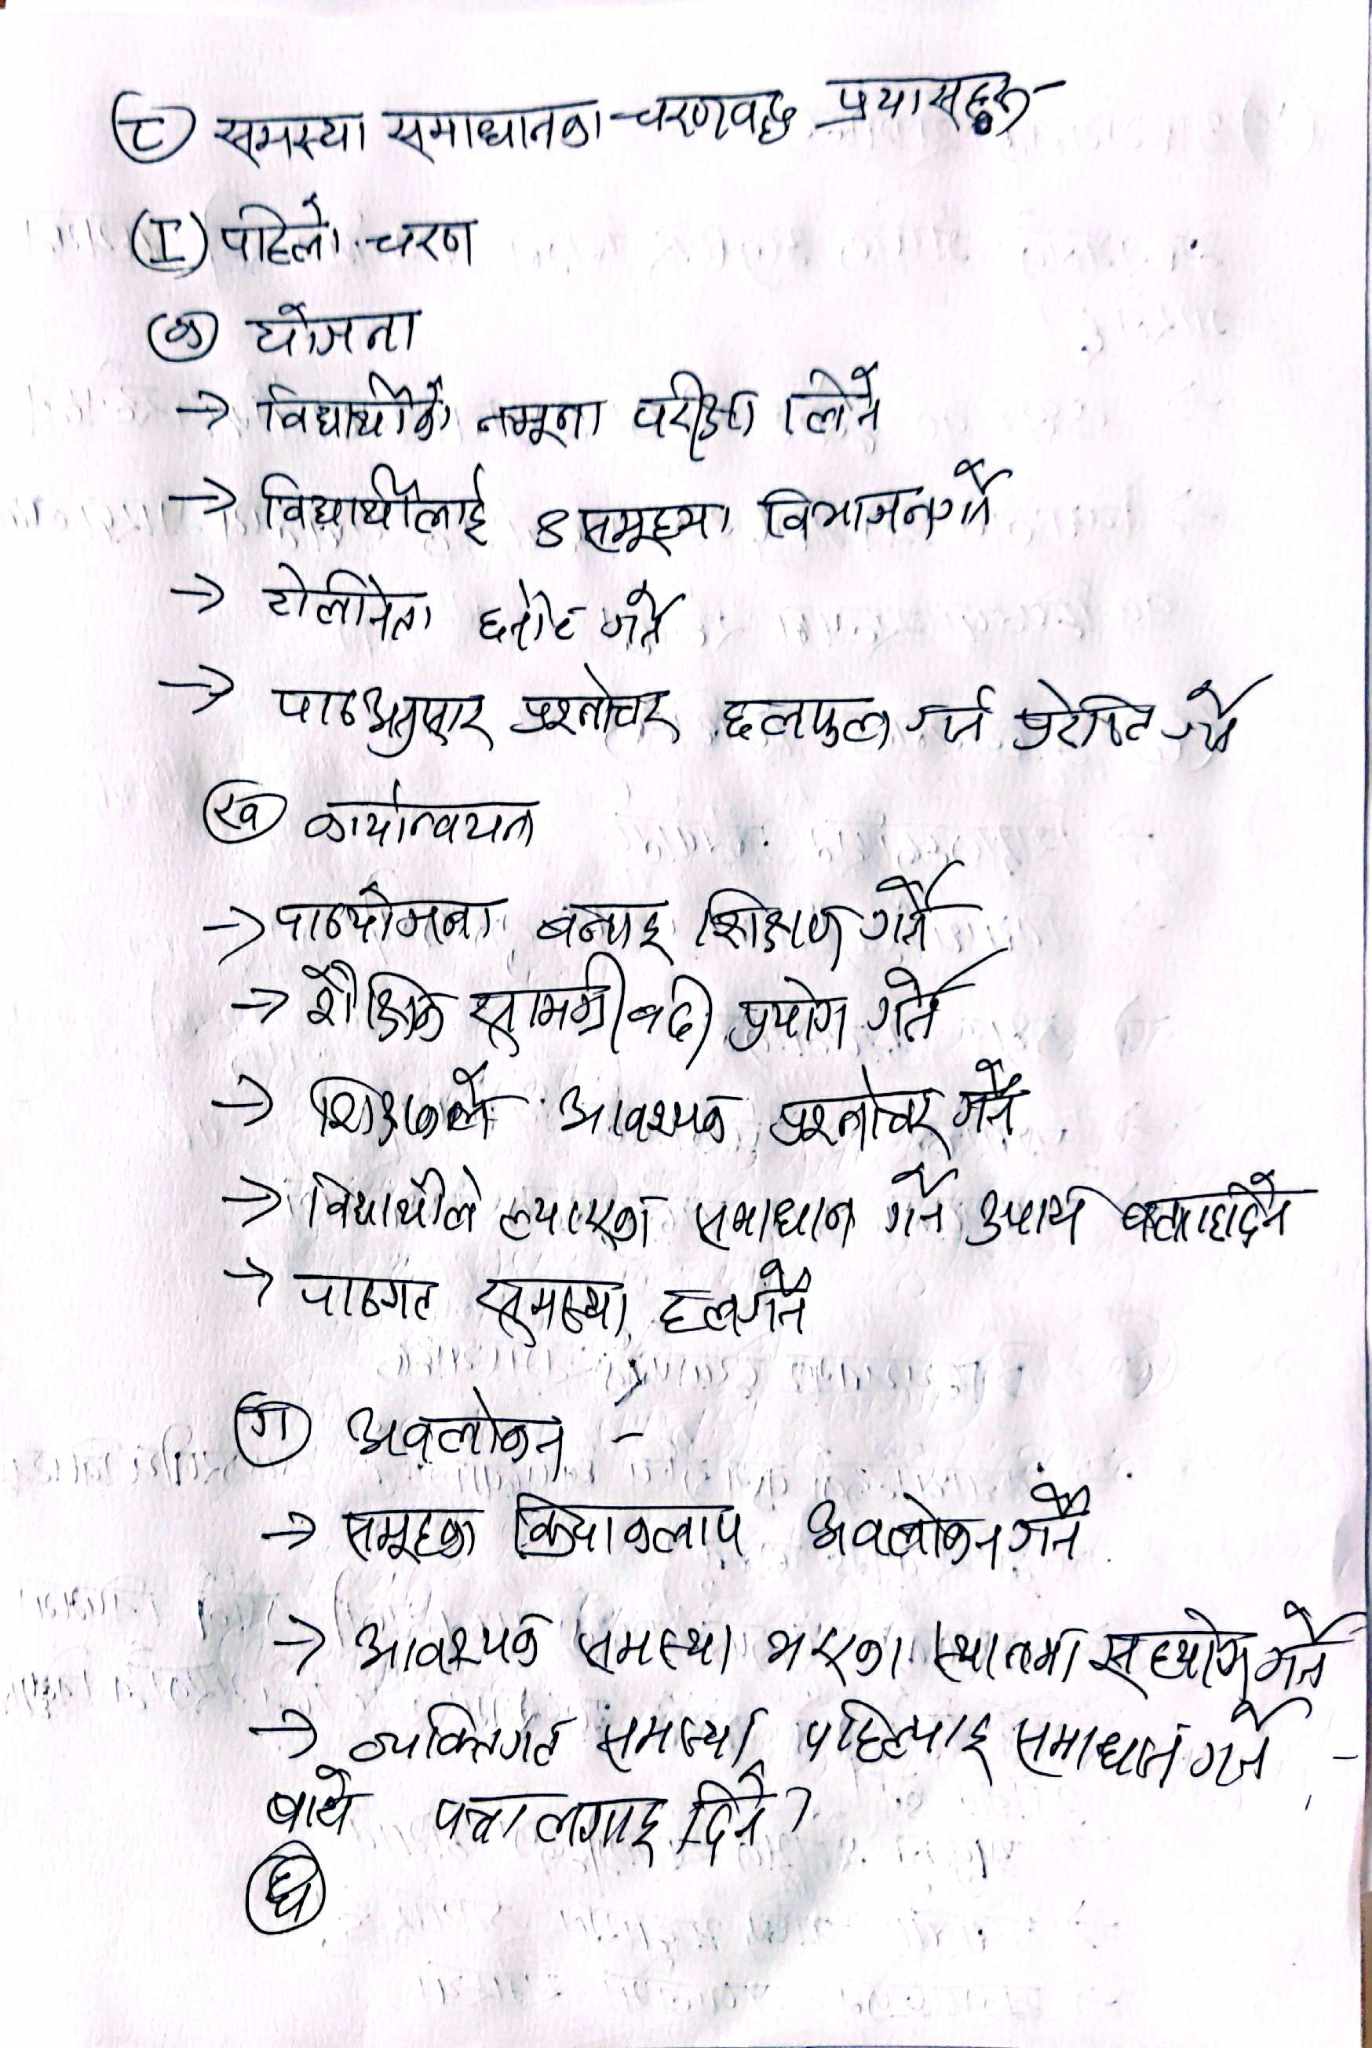 (८) समस्या समाधानका चरणवद्ध प्रयासहरु-
(I) पहिलो चरण
(क) योजना
→ विद्यार्थीको नमूना परीक्षा लिने
→ विद्यार्थीलाई ४ समूहमा विभाजन गर्ने
→ टोलीनेता छनोट गर्ने
→ पाठअनुसार प्रश्नोत्तर छलफल गर्न प्रेरित गर्ने
(ख) कार्यान्वयन
→ पाठयोजना बनाइ शिक्षण गर्ने
→ शैक्षिक सामग्री प्रयोग गर्ने
→ शिक्षकले आवश्यक प्रश्नोत्तर गर्ने
→ विद्यार्थीले ल्याएका समाधान गर्ने उपाय बताइदिने
→ पाठगत समस्या हल गर्ने
(ग) अवलोकन -
→ समूहका क्रियाकलाप अवलोकन गर्ने
→ आवश्यक समस्या भएका स्थानमा सहयोग गर्ने
→ व्यक्तिगत समस्या पहिल्याइ समाधान गर्ने -
बाये पत्ता लगाइ दिने ?
(घ)